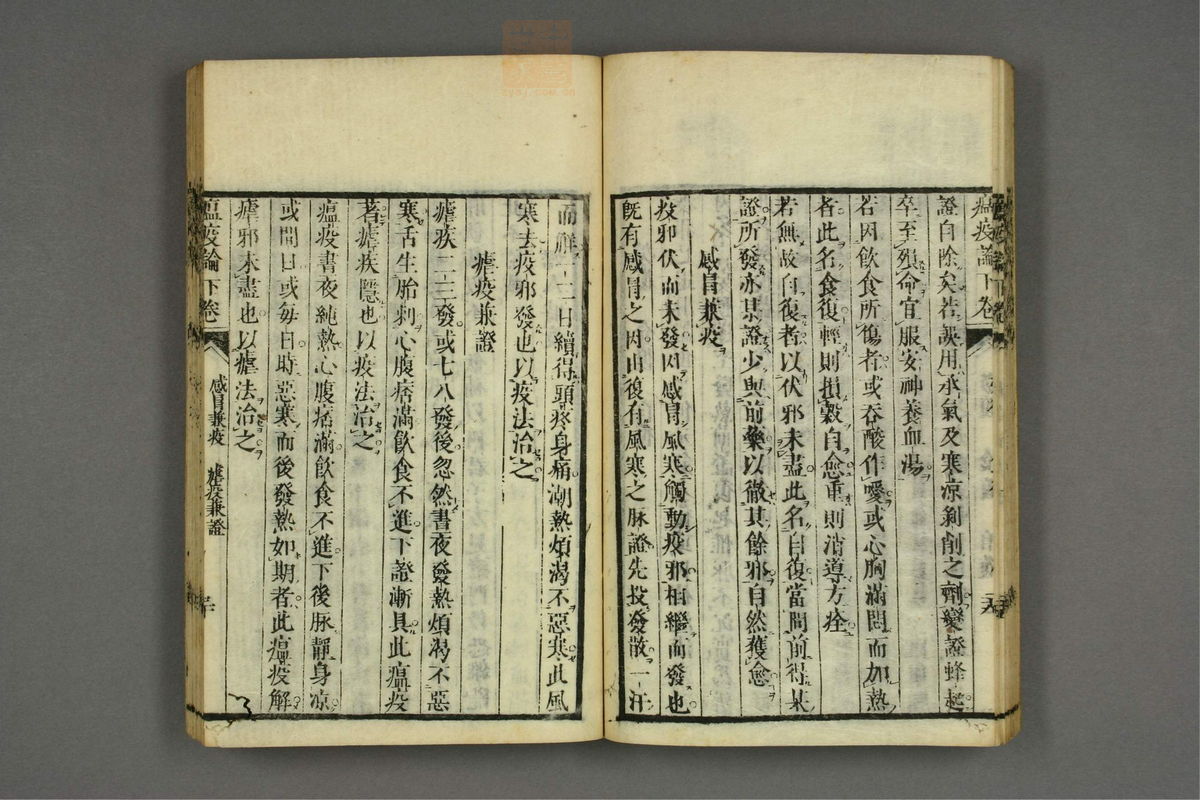 瘟疫論下卷
證自除矣若誤用承氣及寒凉剝削之劑變證蜂起
卒至殞命宜服安神養血湯
若因飲食所傷者或吞酸作噯或心胸滿悶而加熱
者此名食復輕則損穀自愈重則消導方痊
若無故自復者以伏邪未盡此名自復當問前得某
證所發亦某證少與前藥以徹其餘邪自然獲愈
感冒兼疫
疫邪伏而未發因感冒風寒觸動疫邪相繼而發也
既有感冒之因由復有風寒之脉證先投發散一汗
而解一二日續得頭疼身痛潮熱煩渴不惡寒此風
寒去疫邪發也以疫法治之
瘧疫兼證
瘧疾二三發或七八發後忽然晝夜發熱煩渴不惡
寒舌生胎刺心腹痞滿飲食不進下證漸具此瘟疫
著瘧疾隱也以疫法治之
瘟疫晝夜純熱心腹痞滿飲食不進下後脉靜身凉
或間日或每日時惡寒而後發熱如期者此瘟疫解
瘧邪未盡也以瘧法治之
瘟疫論下卷
感冒兼疫 瘧疫兼證